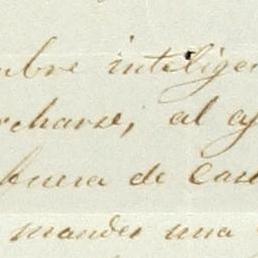 mbre inteligen
rcharse, al ay
fuera de Cas
mandes una